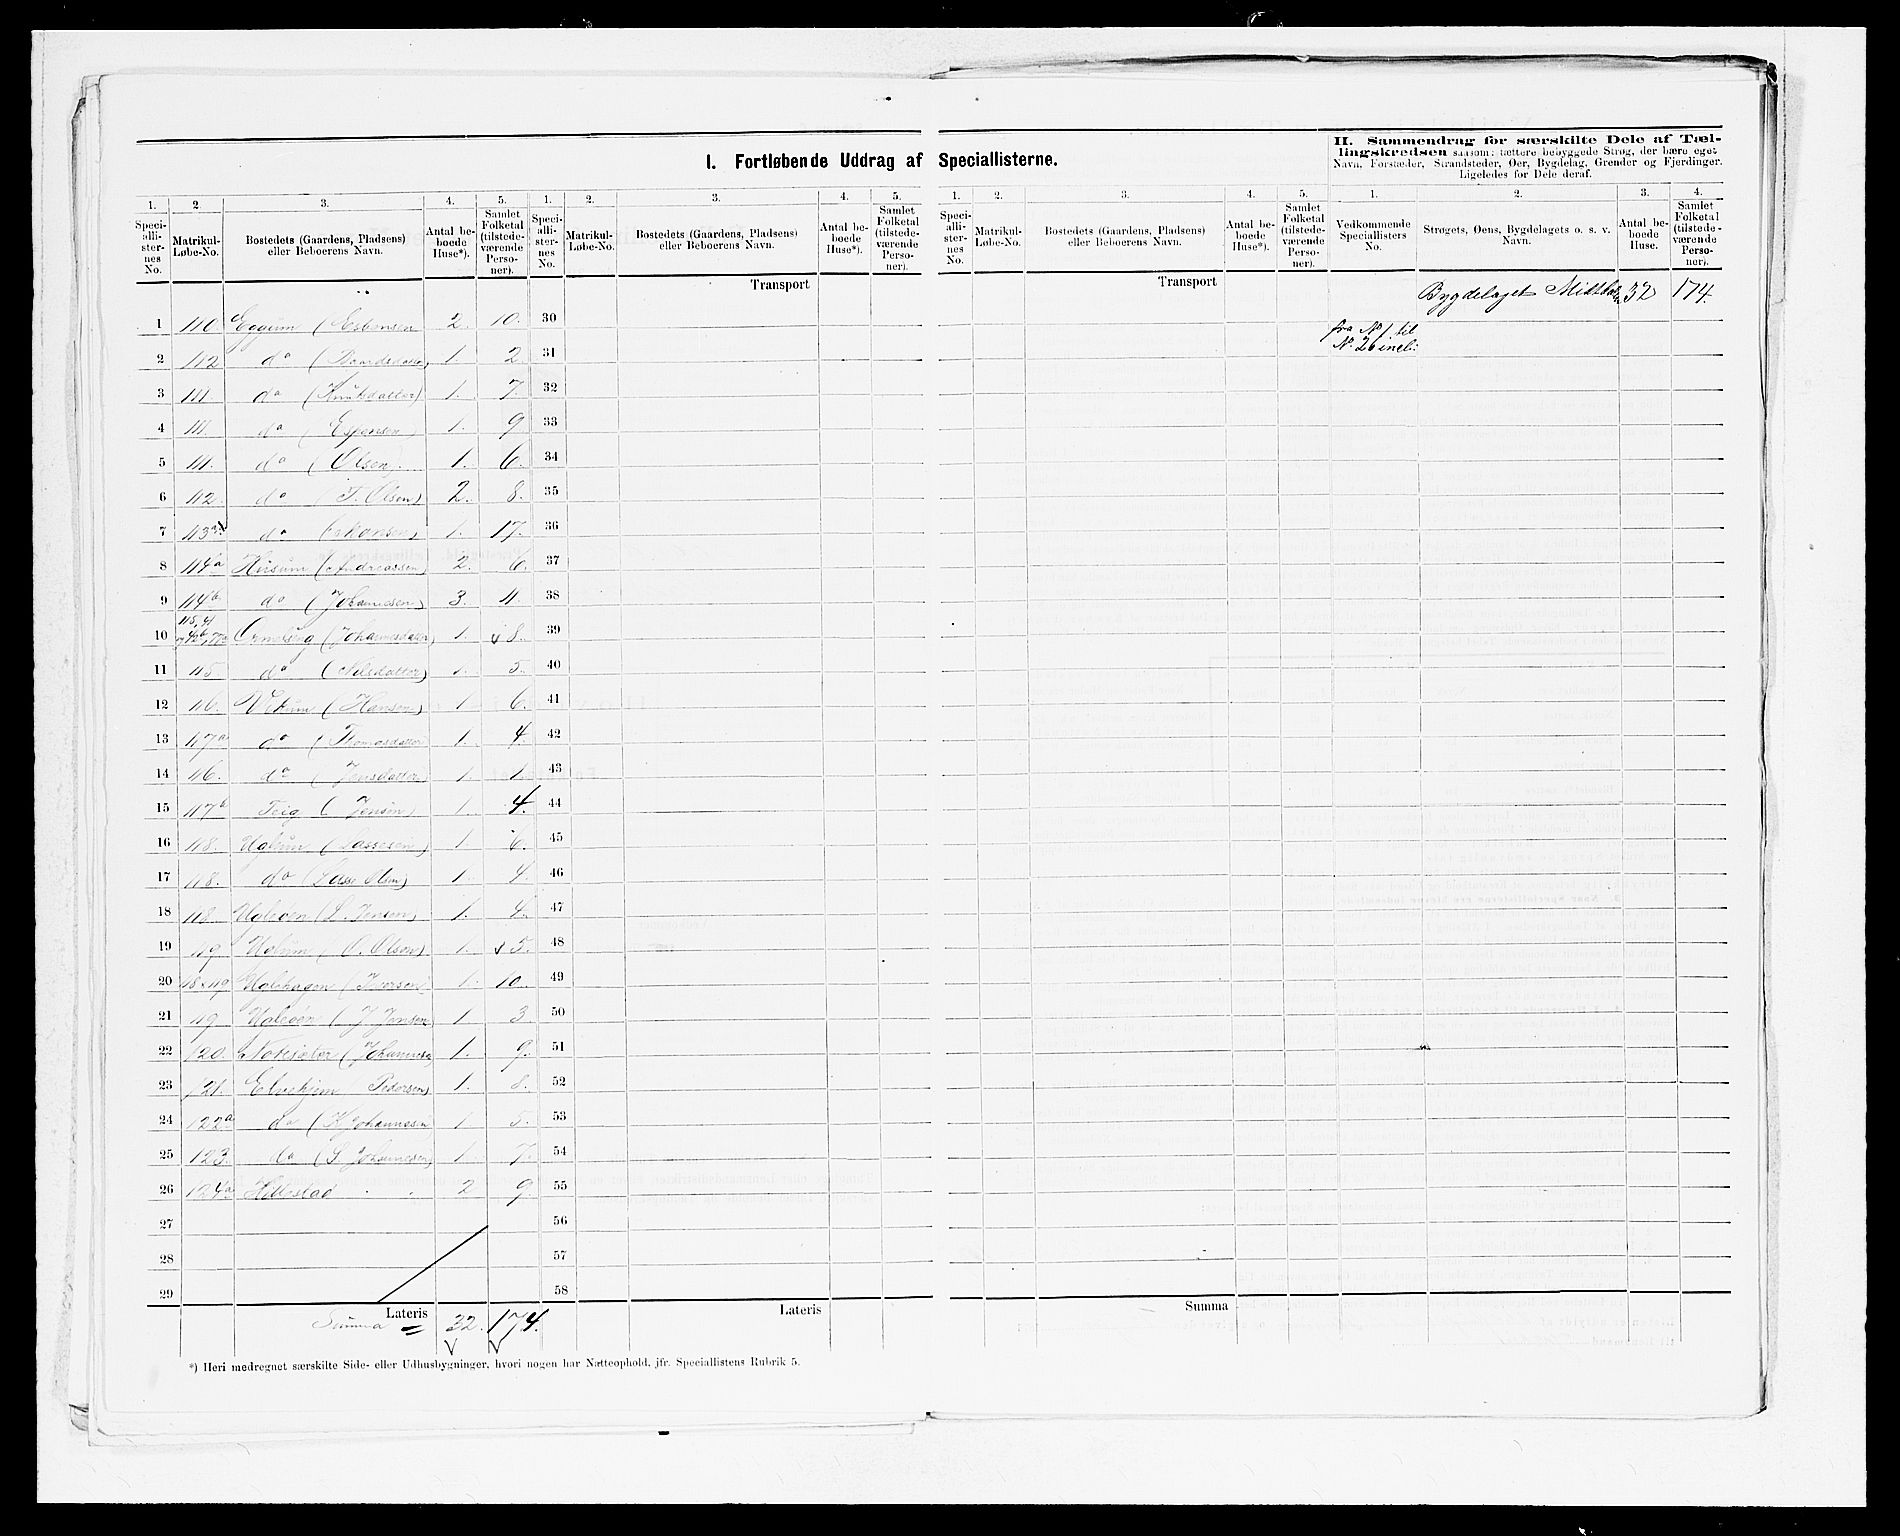 I. Fortløbende Uddrag af Speciallisterne.
II. Sammendrag for særskilte Dele af Tæl-
lingskredsen saasom: tættere bebyggede Strøg, der bære eget
Navn, Forstæder, Strandsteder, Øer, Bygdelag, Grender og Fjerdinger.
Ligeledes for Dele deraf.
1. 2. 3. 4. 5. 1. 2. 3. 4. 5. 1. 2. 3. 4. 5. 1. 2. 3. 4.
Speci-alli-ster-nes No. Matrikul-Løbe-No. Bostedets (Gaardens, Pladsens) eller Beboerens Navn. Antal be-boede Huse*). Samlet Folketal (tilstede-værende Perso-ner).
Speci-alli-ster-nes No. Matrikul-Løbe-No. Bostedets (Gaardens, Pladsens) eller Beboerens Navn. Antal be-boede Huse*). Samlet Folketal (tilstede-værende Perso-ner).
Speci-alli-ster-nes No. Matrikul-Løbe-No. Bostedets (Gaardens, Pladsens) eller Beboerens Navn. Antal be-boede Huse*). Samlet Folketal (tilstede-værende Perso-ner).
Vedkommende Speciallisters No. Strøgets, Øens, Bygdelagets o. s. v. Navn. Antal be-boede Huse. Samlet Folketal (tilstede-værende Perso-ner).
Transport Transport
Bygdelaget 32 174.
fra No 1 til
No. 26 incl:
1 110 Eggum (Esbensen 2. 10. 30
2 112 do 1. 2. 31
3 111. do (Knutsdatter) 1. 7. 32
4 111. do (Espensen) 1. 9 33
5 111. do (Olsen) 1. 6. 34
6 112. do (T. Olsen) 2. 8. 35
7 113 do 1. 17. 36
8 114a Husum (Andreassen) 2. 6. 37
9 114b do (Johannesen) 3. 11. 38
10 (Johannesdatter) 1. 8. 39
11 115 do (Nilsdatter) 1. 5. 40
12 116. Vikum (Hansen) 1 6. 41
13 117a do (Thomasdatter 1. 4. 42
14 116. do (Jensdatter) 1. 1. 43
15 117b Teig (Jensen) 1. 4. 44
16 118. (Lassesen) 1. 6. 45
17 118. do (Lasse Olsen) 1. 4. 46
18 118. (L. Jensen) 1. 4. 47
19 119. (O. Olsen) 1. 5. 48
20 118 & 119 (Iversen) 1. 10. 49
21 119 (J Jensen) 1 3. 50
22 120. (Johannesen 1. 9. 51
23 121. (Pedersen) 1. 8. 52
24 122a do (K Johannesen 1 5. 53
25 123. do (S Johannesen) 1. 7. 54
26 124a Hillestad 2 9. 55
27 56
28 57
29 58
Lateris Lateris Summa
Summa = 32. 174.
*) Heri medregnet særskilte Side- eller Udhusbygninger, hvori nogen har Natteophold, jfr. Speciallistens Rubrik 5.